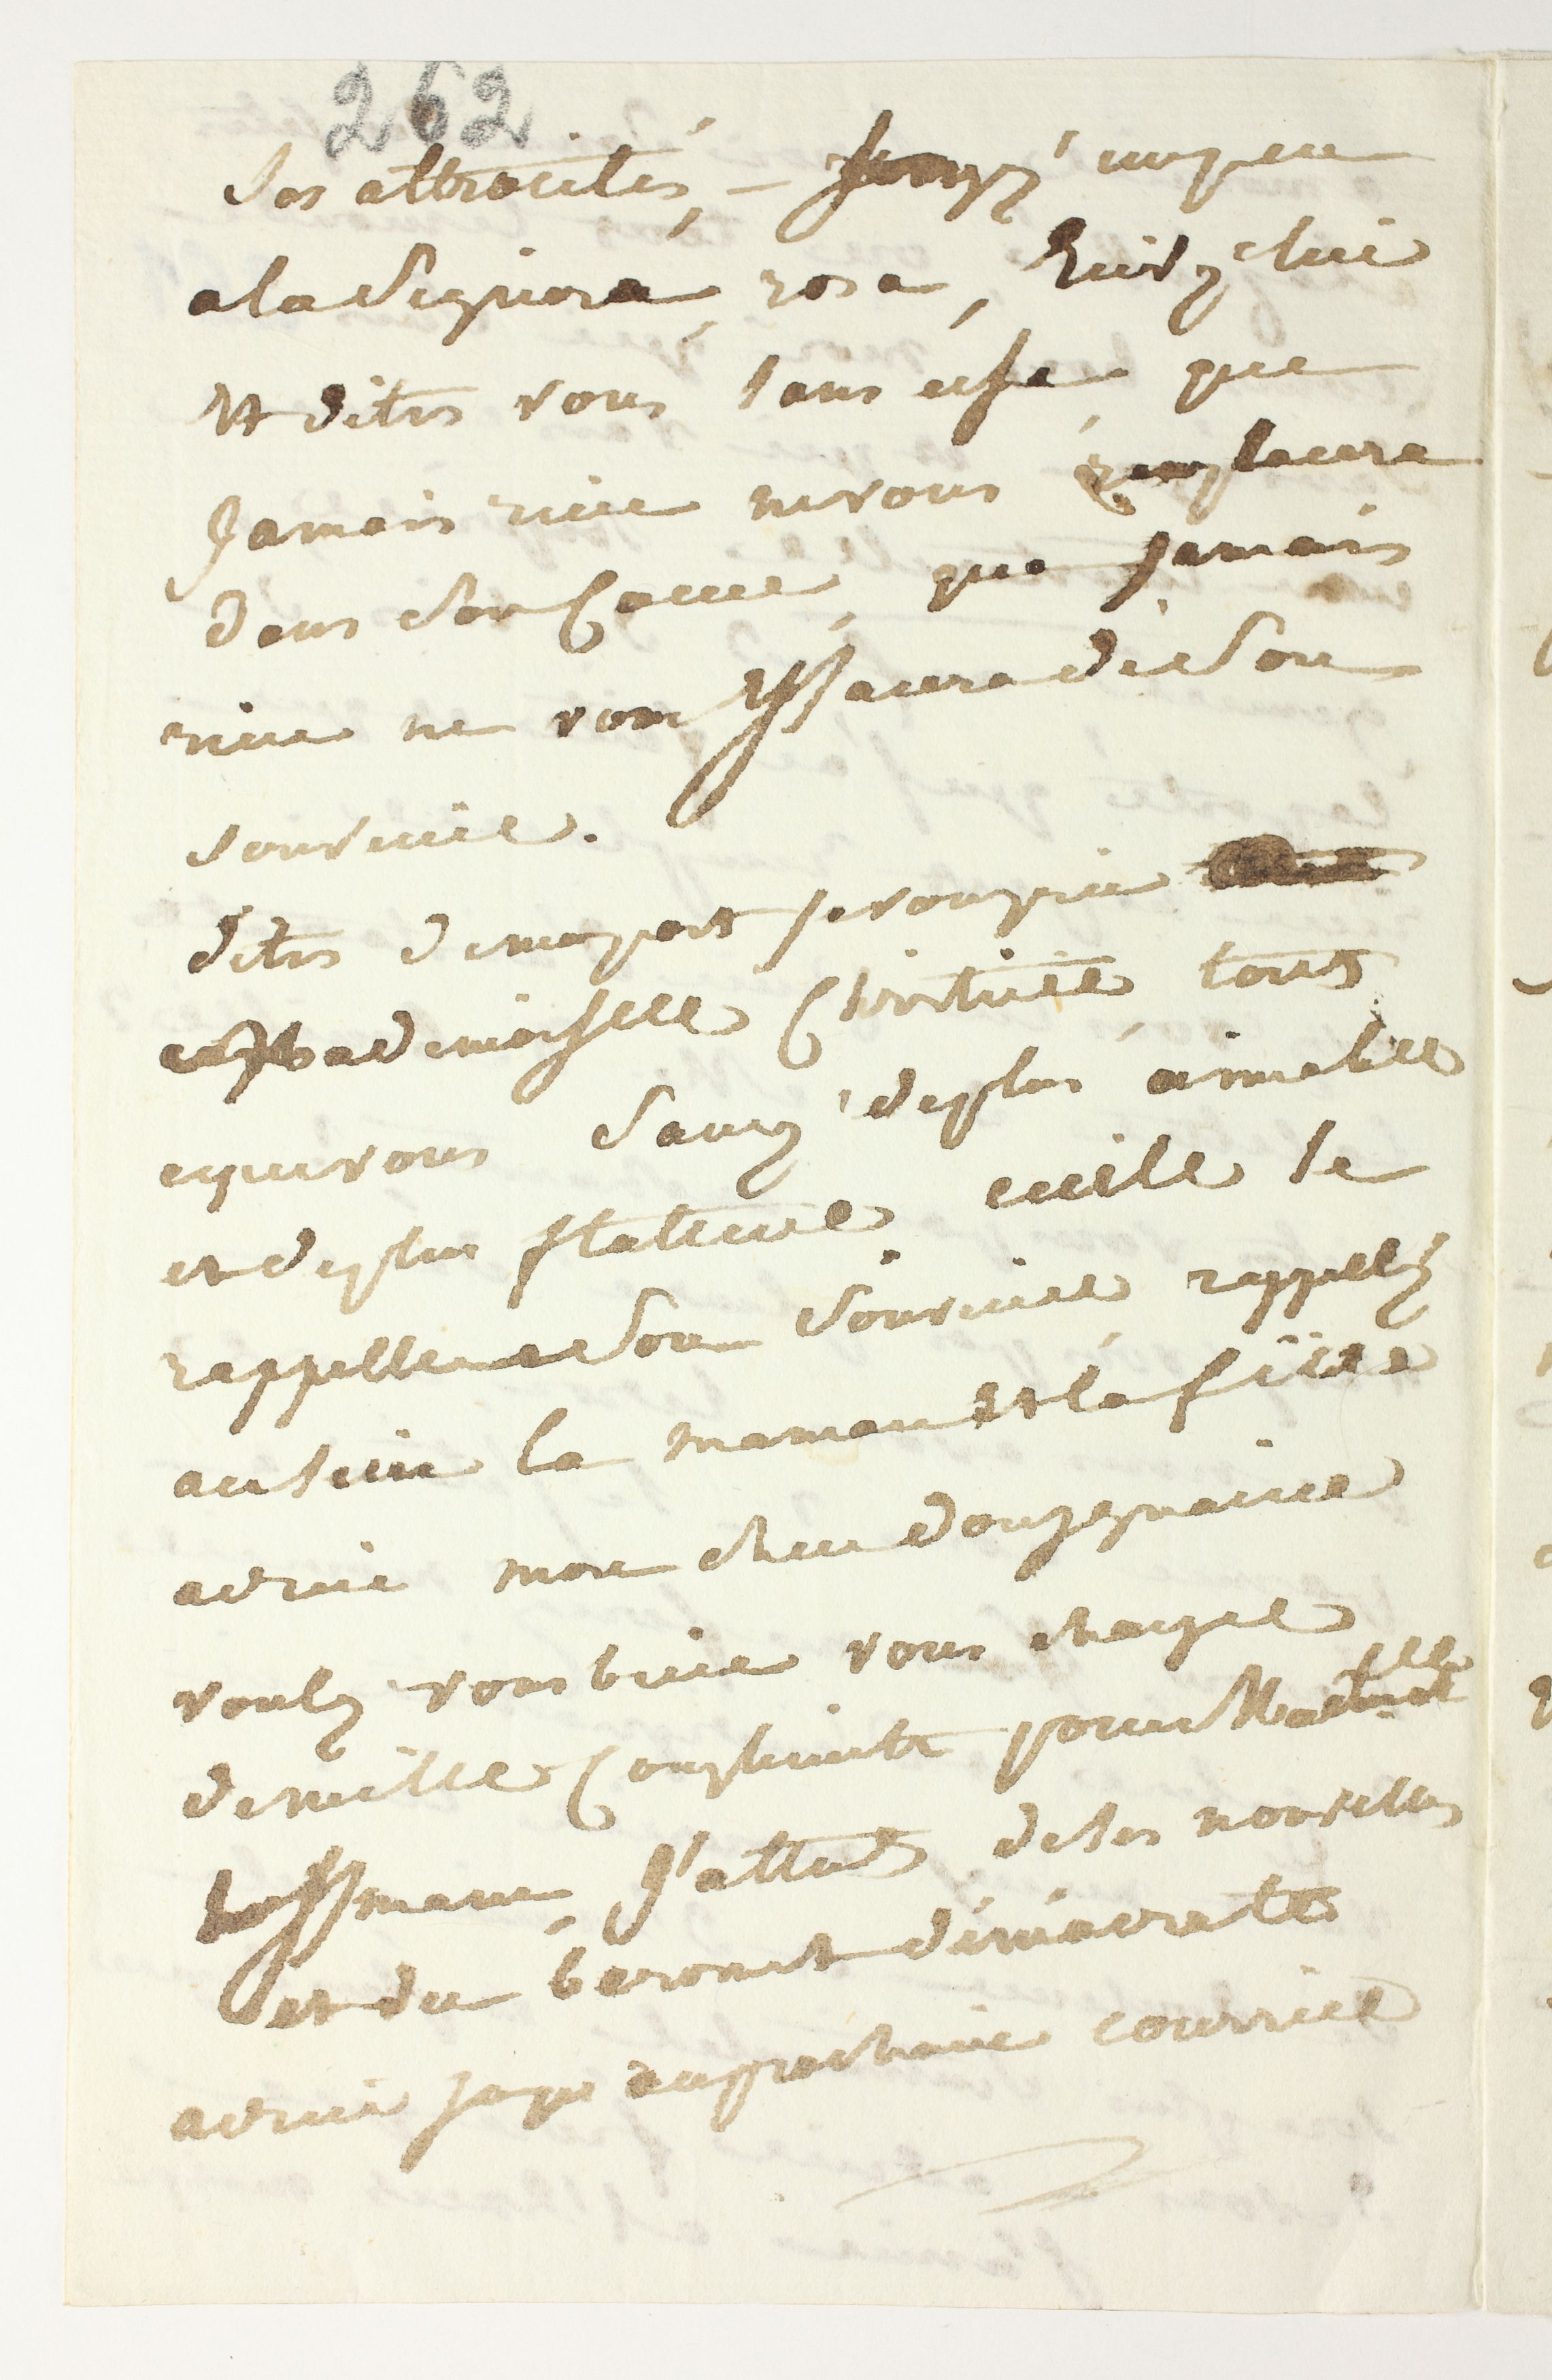 262
Ses attrocités, — Songez un peu
a la Signora rosa, Ecrivez lui
Et dites vous sans cesse que
Jamais rien ne vous remplacera
dans Son Coeur, que Jamais
rien ne vous Effacera de Son
Souvenir.
dites de ma part je vous prie
a Mademoiselle Christine tout
ce que vous Savez de plus aimable
et de plus flatteur. qu'elle se
rappelle Son Souvenir rappellez
aussi la maman Et la fille
adieu mon cher
voulez vous bien vous charger
de mille Compliments pour Mad
hoffmann, J'attends de ses nouvelles
et du baronet démocrate
adieu jusqu'au prochain courrier